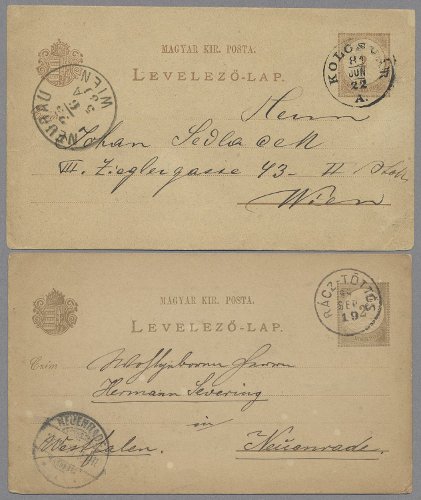 MAGYAR KIR. POSTA.
LEVELEZŐ-LAP.
KOLOZSVÁR
JUN
22
A.
NEUBAU
WIEN
Herrn
Johan Sedlacek
III. Zieglergasse 43 - II Stock
Wien
MAGYAR KIR. POSTA.
LEVELEZŐ-LAP.
RÁCZ-TÖTTÖS
SEP.
192
Czim
Wohlgebornen Herrn
Hermann Severing
in
Westfalen. Neuenrade.
NEUENRADE